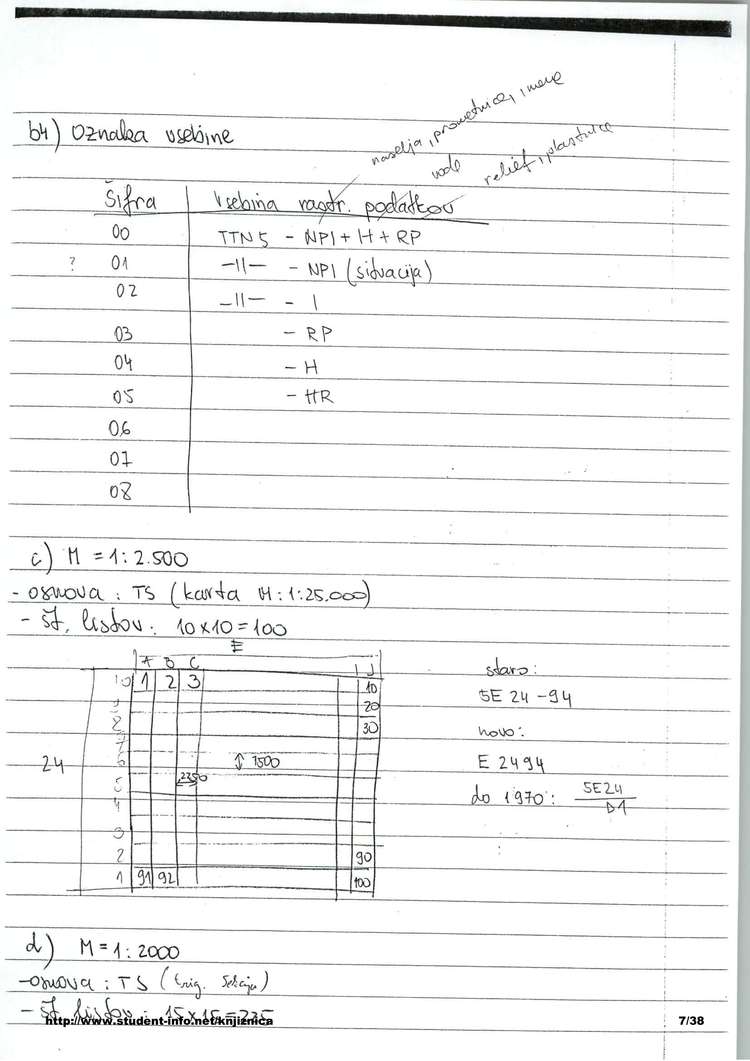 b4) Oznaka vsebine
naselja, prometnice, imena
vode
relief, plastnice
Šifra Vsebina rastr. podatkov
00 TTN5 - NPI + H + RP
? 01 -11- - NPI (situacija)
02 -11- - I
03 - RP
04 - H
05 - HR
06
07
08
c) M = 1:2.500
- osnova: TS (karta M: 1:25.000)
- št. listov: 10x10 = 100
E
A B C I J
10 1 2 3 10
9 20
8 30
7
24 6 ↕ 1500
5 2250
4
3
2 90
1 91 92 100
staro:
5E 24 - 94
novo:
E 2494
do 1970: 5E24
D1
d) M = 1:2000
- osnova: TS (trig. sekcija)
- št. listov: 15x15=225
http://www.student-info.net/knjiznica 7/38